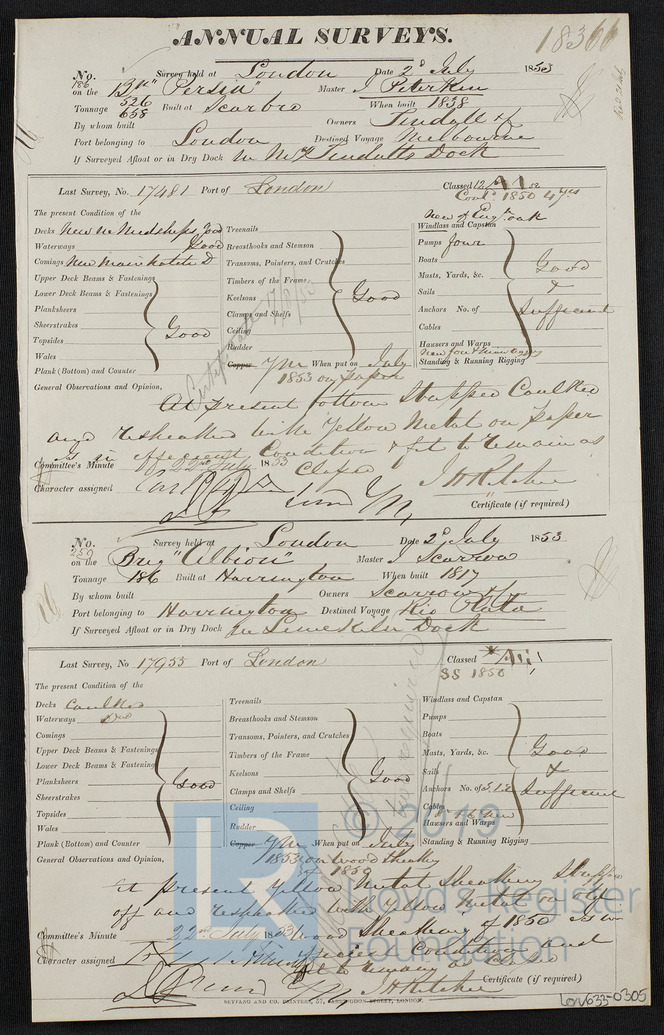 ANNUAL SURVEYS. 18366
No. 186 Survey held at London Date 2d July 1853
on the Bk "Persia" Master J Peterkin
Tonnage 526 658 Built at Scarbro When built 1838
By whom built Owners Tindall & Co
Port belonging to London Destined Voyage Melbourne
If Surveyed Afloat or in Dry Dock In Mr Tindall's Dock
Last Survey, No. 17481 Port of London Classed 12 A1
Cont. 1850 4 yrs
The present Condition of the
New of Engh oak
Decks New in Midships Good Treenails Windlass and Capstan
Waterways Good Breasthooks and Stemson Pumps four
Comings New Main Transoms, Pointers, and Crutches Boats Good
Upper Deck Beams & Fastenings Timbers of the Frame Masts, Yards, &c. &
Lower Deck Beams & Fastenings Keelsons Good Sails
Planksheers Clamps and Shelfs Anchors No. of Sufficient
Sheerstrakes Good Ceiling Cables
Topsides Rudder Hawsers and Warps
Wales Copper YM When put on July Standing & Running Rigging
Plank (Bottom) and Counter 1853 on paper
Certificate
General Observations and Opinion,
At present bottom Stripped Caulked
and resheathed with Yellow Metal on paper
is in efficient Condition & fit to remain as
Committee's Minute 22nd July 1853 Classed
Character assigned J H Ritchie
Certificate (if required)
No. 259 Survey held at London Date 2d July 1853
on the Brig "Albion" Master J Scarrow
Tonnage 186 Built at Harrington When built 1817
By whom built Owners Scarrow & Co
Port belonging to Harrington Destined Voyage Rio Plata
If Surveyed Afloat or in Dry Dock In Limekiln Dock
Last Survey, No 17933 Port of London Classed *Æ1
SS 1850
The present Condition of the
Decks Caulked Treenails Windlass and Capstan
Waterways Breasthooks and Stemson Pumps
Comings Transoms, Pointers, and Crutches Boats
Upper Deck Beams & Fastenings Timbers of the Frame Masts, Yards, &c. Good
Lower Deck Beams & Fastening Keelsons Good Sails &
Planksheers Good Clamps and Shelfs Anchors No. of Sufficient
Sheerstrakes Ceiling Cables
Topsides Rudder Hawsers and Warps
Wales Copper YM When put on July Standing & Running Rigging
Plank (Bottom) and Counter 1853 on wood sheathg
of 1850
not required
General Observations and Opinion,
At present Yellow Metal Sheathing Stripped
off and resheathed with Yellow Metal on the
Committee's Minute 22nd July 1853 Wood Sheathing of 1850 is in
Character assigned efficient Condition and
fit to remain as Classed
J H Ritchie
Certificate (if required)
SEYFANG AND CO. PRINTERS, 57, FARRINGDON STREET, LONDON.
LON633-0305
LR
© 2019
Lloyd's Register
Foundation